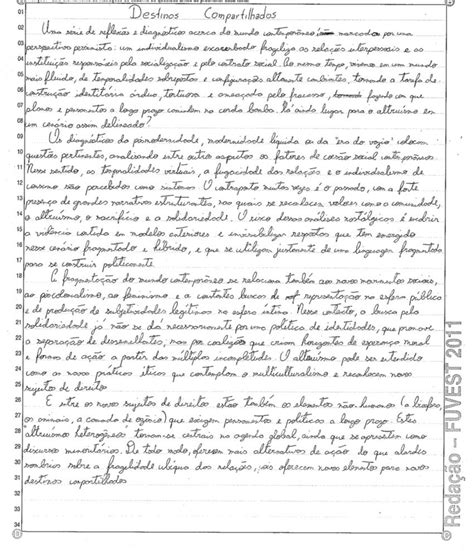 Destinos Compartilhados
Uma série de reflexões e diagnósticos acerca do mundo contemporâneo é marcada por uma
perspectiva pessimista: um individualismo exacerbado fragiliza as relações interpessoais e as
instituições responsáveis pela socialização e pelo contrato social. Ao mesmo tempo, vivemos em um mundo
mais fluido, de temporalidades sobrepostas e configurações altamente cambiantes, tornando a tarefa da
construção identitária árdua, tortuosa e ameaçada pelo fracasso, fazendo com que
planos e pensamentos a longo prazo caminhem na corda bamba. Há ainda lugar para o altruísmo em
um cenário assim delineado?
Os diagnósticos da pósmodernidade, modernidade líquida ou da "era do vazio" colocam
questões pertinentes, analisando entre outros aspectos os fatores de coesão social contemporâneos.
Nesse sentido, as temporalidades virtuais, a fugacidade das relações e o individualismo de
consumo são percebidos como sintomas. O contraponto muitas vezes é o passado, com a forte
presença de grandes narrativas estruturantes, nas quais se reconhecem valores como a comunidade,
o altruísmo, o sacrifício e a solidariedade. O risco dessas análises nostálgicas é encobrir
a violência contida em modelos anteriores e invisibilizar respostas que têm emergido
nesse cenário fragmentado e híbrido, e que se utilizam justamente de uma linguagem fragmentada
para se construir politicamente.
A fragmentação do mundo contemporâneo se relaciona também aos novos movimentos sociais,
ao pós-colonialismo, ao feminismo e a constantes buscas de representação na esfera pública
e de produção de subjetividades legítimas na esfera íntima. Nesse contexto, a busca pela
solidariedade já não se dá necessariamente por uma política de identidades, que promove
a separação de dessemelhantes, mas por coalizão que criam horizontes de esperança moral
e formas de ação a partir das múltiplas incompletudes. O altruísmo pode ser entendido
como as novas práticas éticas que contemplam o multiculturalismo e reconhecem novos
sujeitos de direito.
E entre os novos sujeitos de direito estão também os elementos não-humanos (a biosfera,
os animais, a camada de ozônio) que exigem pensamentos e políticas a longo prazo. Estes
"altruísmos heterogêneos" tornam-se centrais na agenda global, ainda que se apresentem como
discursos minoritários. De todo modo, oferecem mais alternativas de ação do que alardes
sombrios sobre a fragilidade ubíqua das relações, pois oferecem novos elementos para novos
destinos compartilhados
Redação – FUVEST 2011